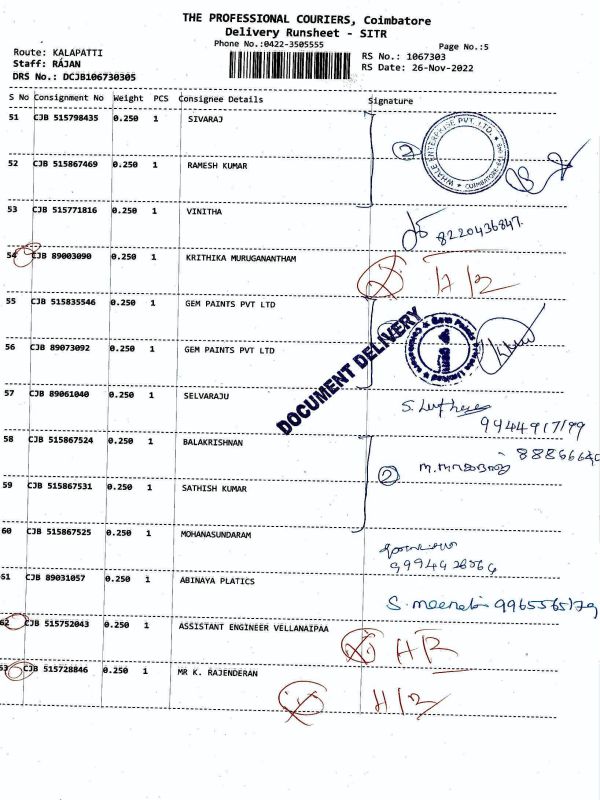 THE PROFESSIONAL COURIERS, Coimbatore
Delivery Runsheet - SITR
Phone No.:0422-3505555
Page No.:5
Route: KALAPATTI
RS No.: 1067303
Staff: RÁJAN
RS Date: 26-Nov-2022
DRS No.: DCJB106730305
S No Consignment No Weight PCS Consignee Details Signature
51 CJB 515798435 0.250 1 SIVARAJ
WHALE ENTERPRISE PVT. LTD. COIMBATORE
2
52 CJB 515867469 0.250 1 RAMESH KUMAR
53 CJB 515771816 0.250 1 VINITHA
8220436847
54 CJB 89003090 0.250 1 KRITHIKA MURUGANANTHAM
55 CJB 515835546 0.250 1 GEM PAINTS PVT LTD
Gem Paints Private Limited
DOCUMENT DELIVERY
56 CJB 89073092 0.250 1 GEM PAINTS PVT LTD
57 CJB 89061040 0.250 1 SELVARAJU
58 CJB 515867524 0.250 1 BALAKRISHNAN
2
59 CJB 515867531 0.250 1 SATHISH KUMAR
60 CJB 515867525 0.250 1 MOHANASUNDARAM
61 CJB 89031057 0.250 1 ABINAYA PLATICS
62 CJB 515752043 0.250 1 ASSISTANT ENGINEER VELLANAIPAA
63 CJB 515728846 0.250 1 MR K. RAJENDERAN